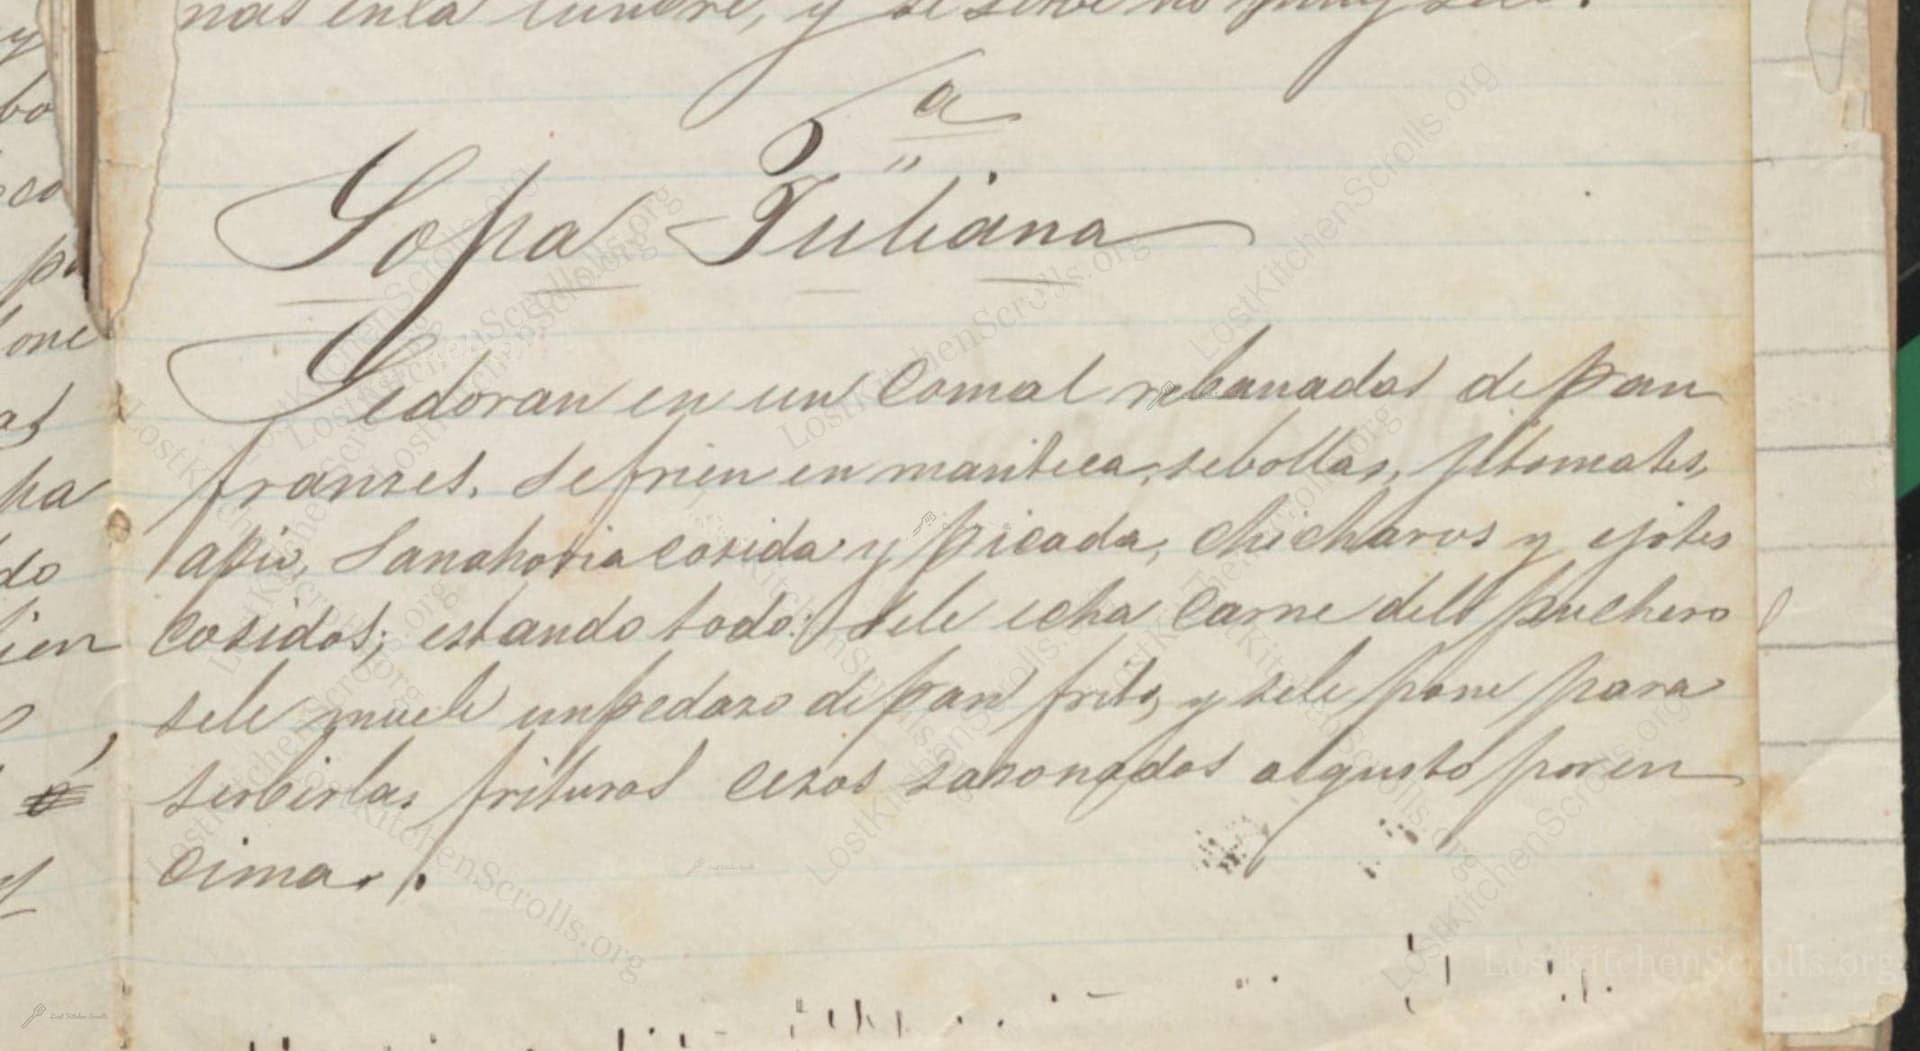 nas en la lumbre, y se sirve no muy seco.
a
Sopa Juliana
Se doran en un comal rebanadas de pan
franses, se frien en manteca, sebollas, jitomates,
apio, sanahoria cosida y picada, chicharos y ejotes
cosidos; estando todo: se le echa carne dell puchero
se le muele un pedaso de pan frito, y se le pone para
serbirla, frituras cesos sasonados al gusto por en
cima.
LostKitchenScrolls.org